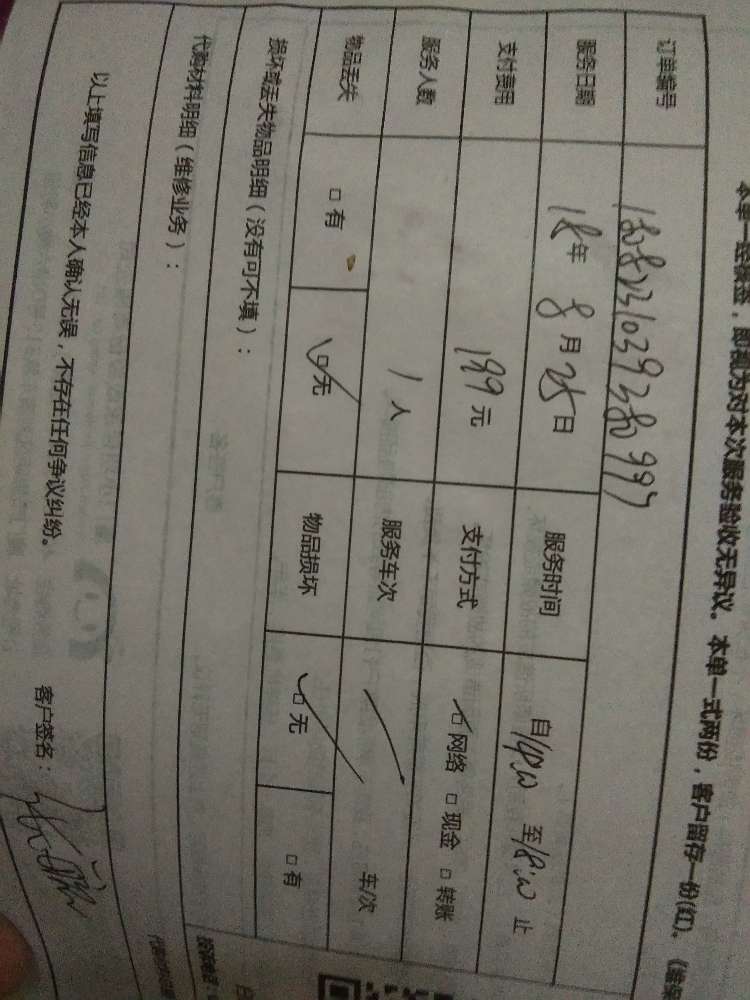 本次服务验收无异议。本单一式两份，客户留存一份(红)。
订单编号
服务日期 18年 8月25日 服务时间 自14:00 至18:00 止
支付费用 199元 支付方式 ☑网络 □现金 □转账
服务人数 1人 服务车次 / 车/次
物品丢失 □有 ☑无 物品损坏 ☑无 □有
损坏或丢失物品明细（没有可不填）：
代购材料明细（维修业务）：
以上填写信息已经本人确认无误，不存在任何争议纠纷。
客户签名：